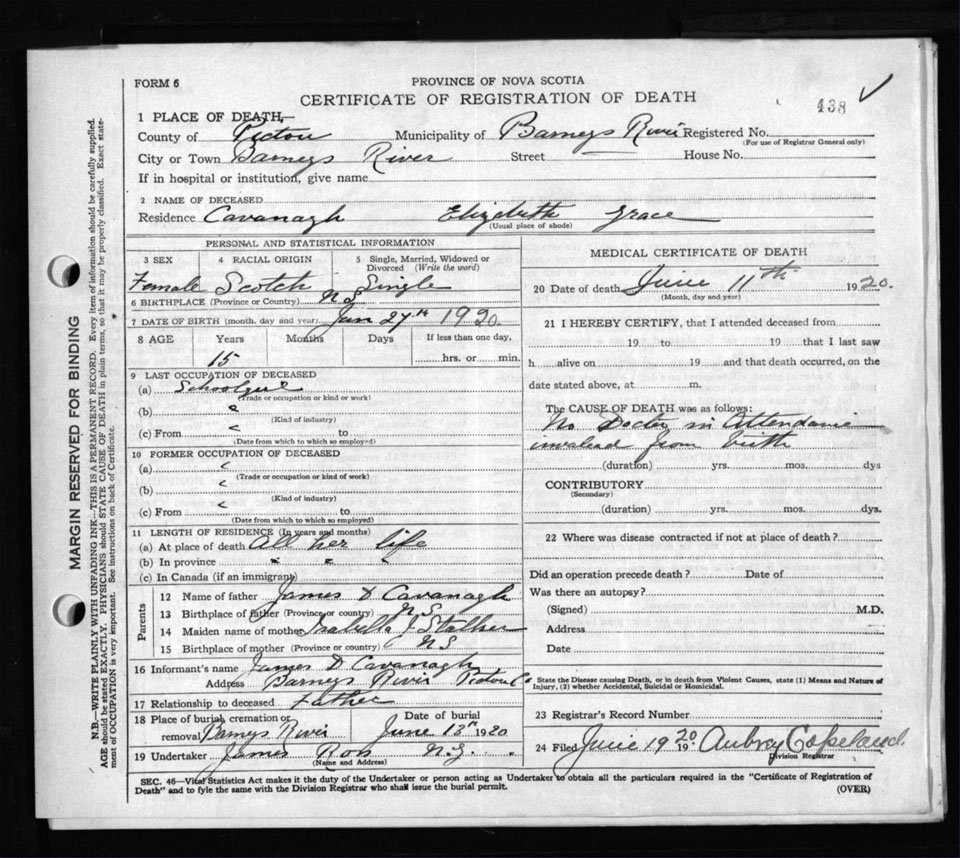 FORM 6
PROVINCE OF NOVA SCOTIA
CERTIFICATE OF REGISTRATION OF DEATH
438
1 PLACE OF DEATH,—
County of Pictou Municipality of Barneys River Registered No.
(For use of Registrar General only)
City or Town Barneys River Street — House No.
If in hospital or institution, give name
2 NAME OF DECEASED
Residence Cavanagh Elizabeth Grace
(Usual place of abode)
PERSONAL AND STATISTICAL INFORMATION
3 SEX 4 RACIAL ORIGIN 5 Single, Married, Widowed or
Divorced (Write the word)
Female Scotch Single
6 BIRTHPLACE (Province or Country) N S
7 DATE OF BIRTH (month, day and year) Jan 27th 1920
8 AGE Years Months Days If less than one day,
15 hrs. or min.
9 LAST OCCUPATION OF DECEASED
(a) Schoolgirl
(Trade or occupation or kind or work)
(b) "
(Kind of industry)
(c) From " to
(Date from which to which so employed)
10 FORMER OCCUPATION OF DECEASED
(a) "
(Trade or occupation or kind of work)
(b) "
(Kind of industry)
(c) From " to
(Date from which to which so employed)
11 LENGTH OF RESIDENCE (In years and months)
(a) At place of death All her life
(b) In province " " "
(c) In Canada (if an immigrant)
Parents
12 Name of father James D Cavanagh
13 Birthplace of father (Province or country) N.S
14 Maiden name of mother Isabella J Stalker
15 Birthplace of mother (Province or country) N S
16 Informant's name James D Cavanagh
Address Barneys River Pictou Co
17 Relationship to deceased Father
18 Place of burial, cremation or Date of burial
removal Barneys River June 13th 1920
19 Undertaker James Ross N.G.
(Name and Address)
MEDICAL CERTIFICATE OF DEATH
20 Date of death June 11th 1920.
(Month, day and year)
21 I HEREBY CERTIFY, that I attended deceased from
19 to 19 that I last saw
h alive on 19 and that death occurred, on the
date stated above, at m.
The CAUSE OF DEATH was as follows:
No Doctor in Attendance
invalead from birth
(duration) yrs. mos. dys
CONTRIBUTORY
(Secondary)
(duration) yrs. mos. dys.
22 Where was disease contracted if not at place of death?
Did an operation precede death? Date of
Was there an autopsy?
(Signed) M.D.
Address
Date
State the Disease causing Death, or in death from Violent Causes, state (1) Means and Nature of
Injury, (2) whether Accidental, Suicidal or Homicidal.
23 Registrar's Record Number
24 Filed June 19 1920 Aubrey Copeland.
Division Registrar
SEC. 46—Vital Statistics Act makes it the duty of the Undertaker or person acting as Undertaker to obtain all the particulars required in the "Certificate of Registration of
Death" and to fyle the same with the Division Registrar who shall issue the burial permit.
(OVER)
MARGIN RESERVED FOR BINDING
N.B.—WRITE PLAINLY WITH UNFADING INK—THIS IS A PERMANENT RECORD. Every item of information should be carefully supplied.
AGE should be stated EXACTLY. PHYSICIANS should STATE CAUSE OF DEATH in plain terms, so that it may be properly classified. Exact state-
ment of OCCUPATION is very important. See instructions on back of Certificate.